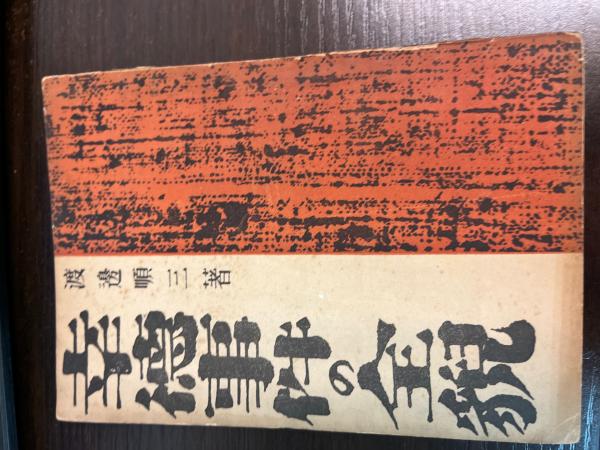 渡邊順三著
幸徳事件の全貌